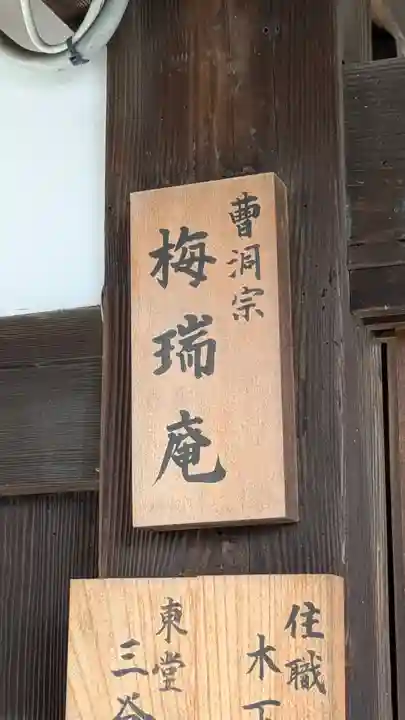 曹洞宗
梅瑞庵
住職
木下
東堂
三